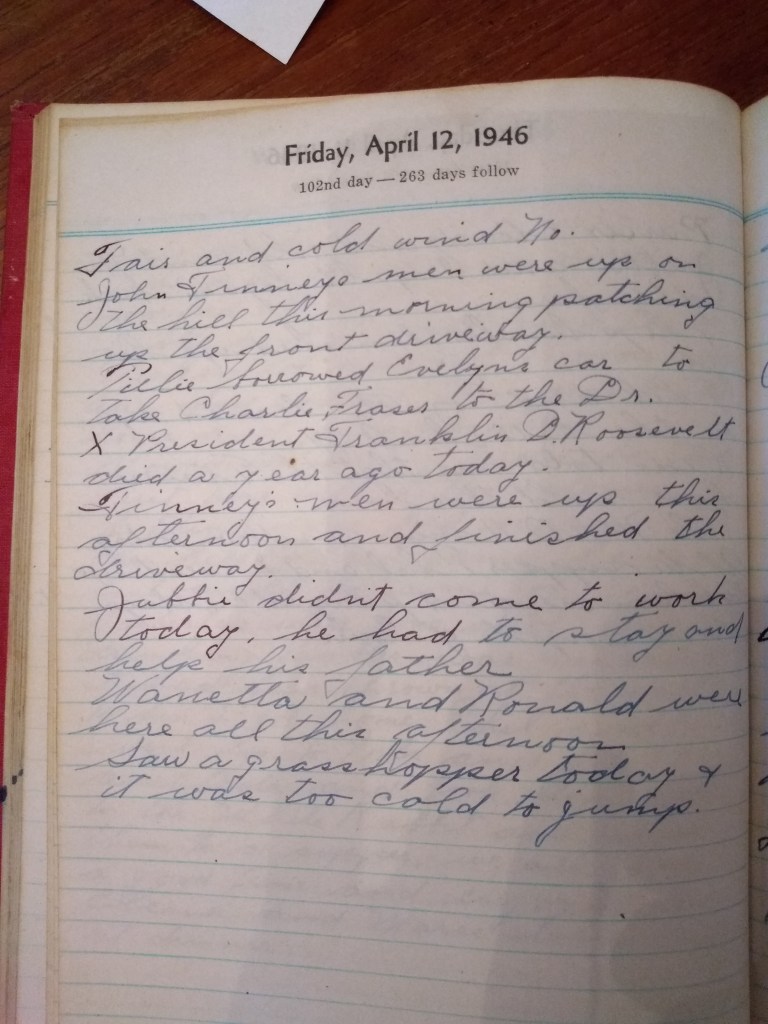 Friday, April 12, 1946
102nd day — 263 days follow
Fair and cold wind No.
John Tinneys men were up on
the hill this morning patching
up the front driveway.
borrowed Evelyns car to
take Charlie Fraser to the Dr.
X President Franklin D. Roosevelt
died a year ago today.
Tinney's men were up this
afternoon and finished the
driveway.
didn't come to work
today, he had to stay and
help his father
Wanetta and Ronald were
here all this afternoon
Saw a grasshopper today &
it was too cold to jump.